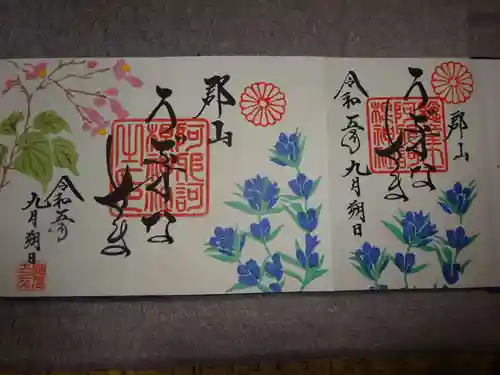 郡山
うぶすな
阿邪訶
根神社
令和五年
九月朔日
郡山
うぶすな
阿邪訶
根神社
之印
令和五年
九月朔日